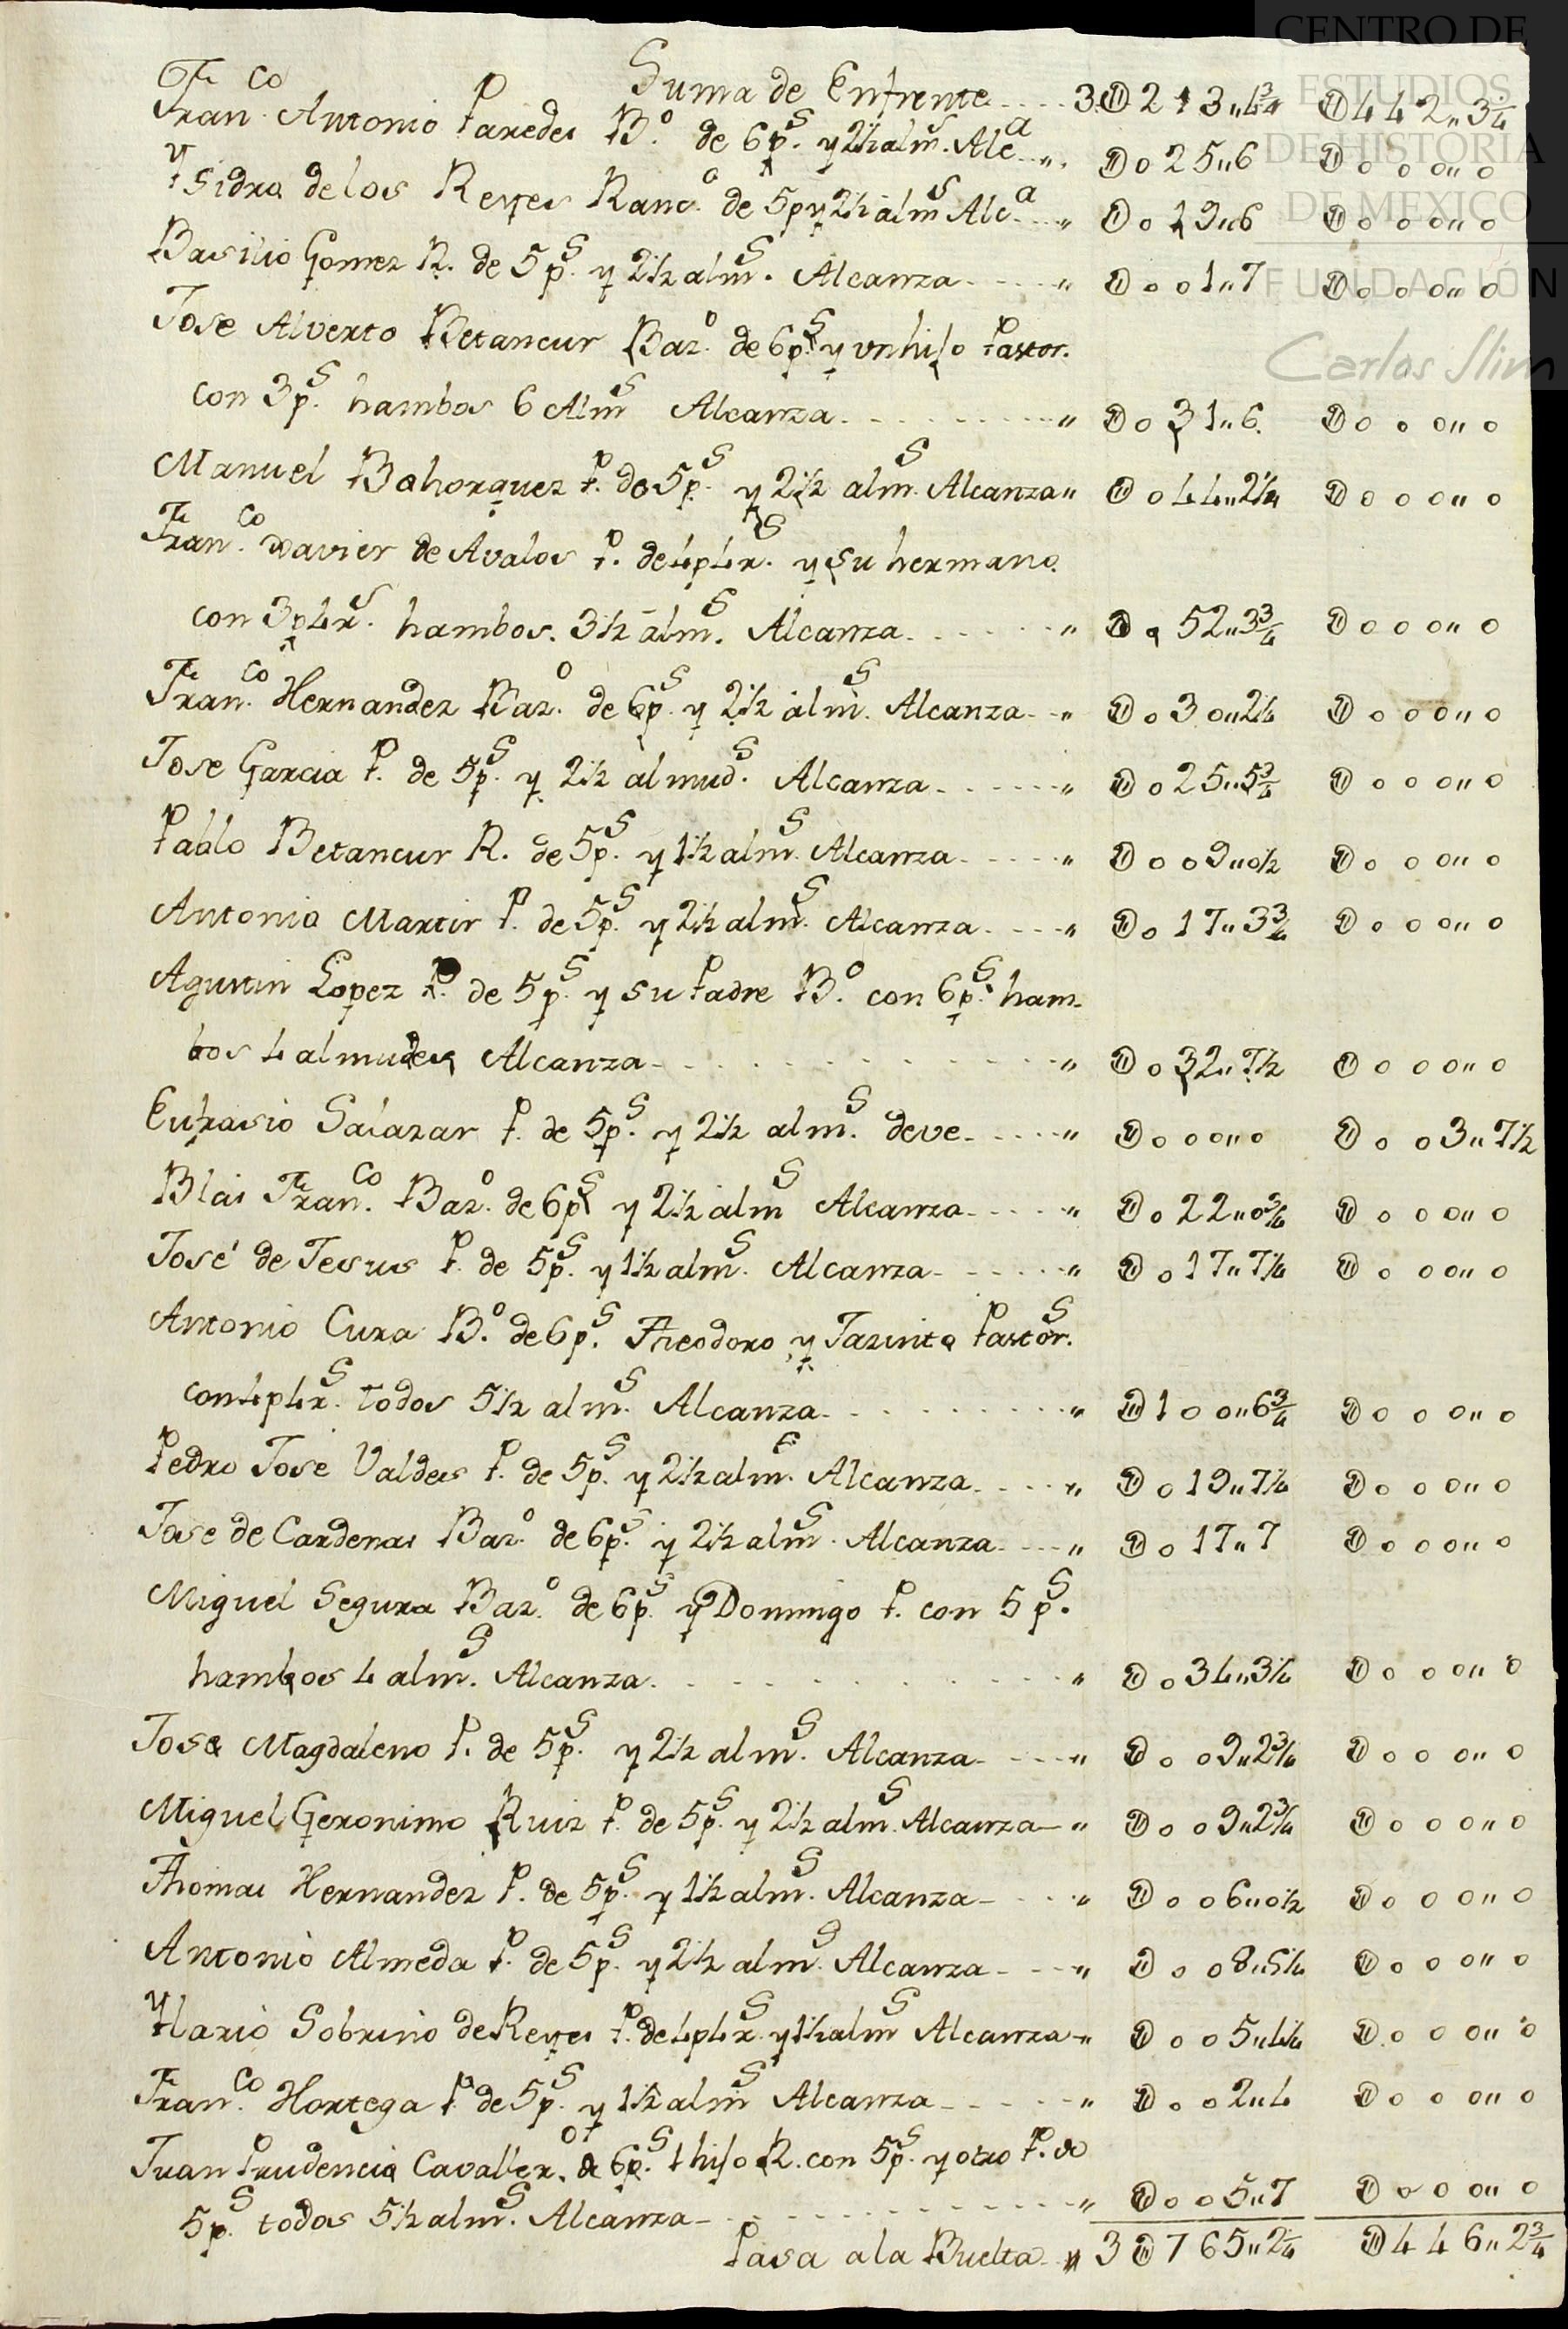 CENTRO DE
ESTUDIOS
DE HISTORIA
DE MEXICO
FUNDACIÓN
Carlos Slim
Suma de Enfrente .... 3U213,,4¾ U442,,3¼
Fran.co Antonio Paredes B.o de 6p.s y 2½ alm.s Alc.a ,, U025,,6 U000,,0
Ysidro de los Reyes Ranc.o de 5p y 2½ alm.s Alc.a ,, U019,,6 U000,,0
Basilio Gomez R. de 5p.s y 2½ alm.s Alcanza .... ,, U001,,7 U000,,0
Jose Alverto Betancur Baz.o de 6p.s y un hijo Pastor.
con 3p.s hambos 6 Alm.s Alcanza .... ,, U031,,6 U000,,0
Manuel Bohorquez P. de 5p.s y 2½ alm.s Alcanza ,, U044,,2¼ U000,,0
Fran.co Xavier de Avalos P. de 4p4r.s y su hermano
con 3p4r.s hambos. 3½ alm.s Alcanza .... ,, U052,,3¾ U000,,0
Fran.co Hernandez Baz.o de 6p.s y 2½ alm.s Alcanza .. ,, U030,,2¼ U000,,0
Jose Garcia P. de 5p.s y 2½ almud.s Alcanza .... ,, U025,,5¾ U000,,0
Pablo Betancur R. de 5p.s y 1½ alm.s Alcanza .... ,, U009,,0½ U000,,0
Antonio Martir P. de 5p.s y 2½ alm.s Alcanza .... ,, U017,,3¾ U000,,0
Agustin Lopez P. de 5p.s y su Padre B.o con 6p.s ham-
bos 4 almudes Alcanza .... ,, U032,,7½ U000,,0
Eufrasio Salazar P. de 5p.s y 2½ alm.s deve .... ,, U000,,0 U003,,7½
Blas Fran.co Baz.o de 6p.s y 2½ alm.s Alcanza .... ,, U022,,0¾ U000,,0
José de Jesus P. de 5p.s y 1½ alm.s Alcanza .... ,, U017,,7¼ U000,,0
Antonio Cura B.o de 6p.s Theodoro y Jazinto Pastor.s
con 4p4r.s todos 5½ alm.s Alcanza .... ,, U100,,6¾ U000,,0
Pedro Jose Valdes P. de 5p.s y 2½ alm.s Alcanza .... ,, U019,,7¼ U000,,0
Jose de Cardenas Baz.o de 6p.s y 2½ alm.s Alcanza .... ,, U017,,7 U000,,0
Miguel Segura Baz.o de 6p.s y Domingo P. con 5p.s
hambos 4 alm.s Alcanza .... ,, U034,,3¼ U000,,0
Jose Magdaleno P. de 5p.s y 2½ alm.s Alcanza .... ,, U009,,2¾ U000,,0
Miguel Geronimo Ruiz P. de 5p.s y 2½ alm.s Alcanza ,, U009,,2¾ U000,,0
Thomas Hernandez P. de 5p.s y 1½ alm.s Alcanza .... ,, U006,,0½ U000,,0
Antonio Almeda P. de 5p.s y 2½ alm.s Alcanza .... ,, U008,,5¼ U000,,0
Ylario Sobrino de Reyes P. de 4p4r.s y 1½ alm.s Alcanza ,, U005,,4¼ U000,,0
Fran.co Hortega P. de 5p.s y 1½ alm.s Alcanza .... ,, U002,,4 U000,,0
Juan Prudencio Cavaller.o de 6p.s 1 hijo R. con 5p.s y otro P. de
5p.s todos 5½ alm.s Alcanza .... ,, U005,,7 U000,,0
Pasa a la Buelta ,, 3U765,,2¼ U446,,2¾